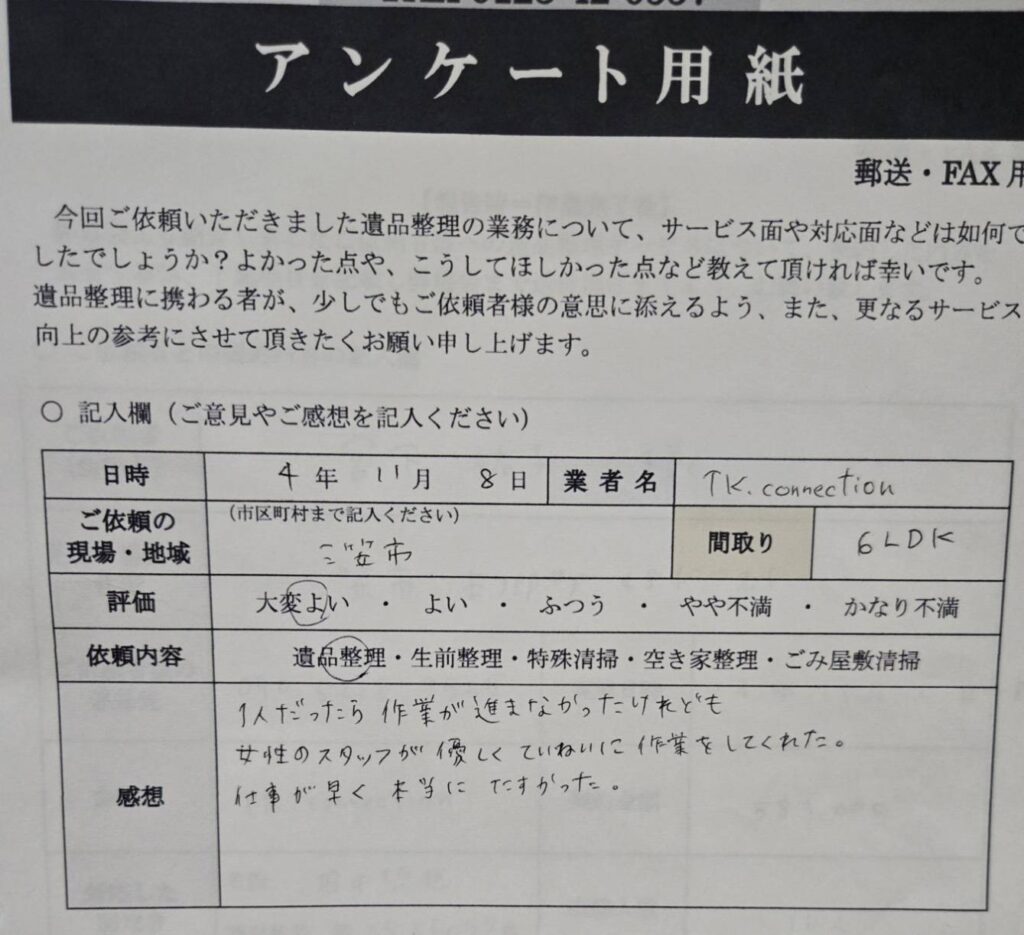 アンケート用紙
郵送・FAX用
今回ご依頼いただきました遺品整理の業務について、サービス面や対応面などは如何で
したでしょうか？よかった点や、こうしてほしかった点など教えて頂ければ幸いです。
遺品整理に携わる者が、少しでもご依頼者様の意思に添えるよう、また、更なるサービス
向上の参考にさせて頂きたくお願い申し上げます。
○ 記入欄（ご意見やご感想を記入ください）
日時 4年 11月 8日 業者名 TK.connection
ご依頼の現場・地域 （市区町村まで記入ください） 三笠市 間取り 6LDK
評価 大変よい ・ よい ・ ふつう ・ やや不満 ・ かなり不満
依頼内容 遺品整理・生前整理・特殊清掃・空き家整理・ごみ屋敷清掃
感想
1人だったら作業が進まなかったけれども
女性のスタッフが優しくていねいに作業をしてくれた。
仕事が早く本当にたすかった。